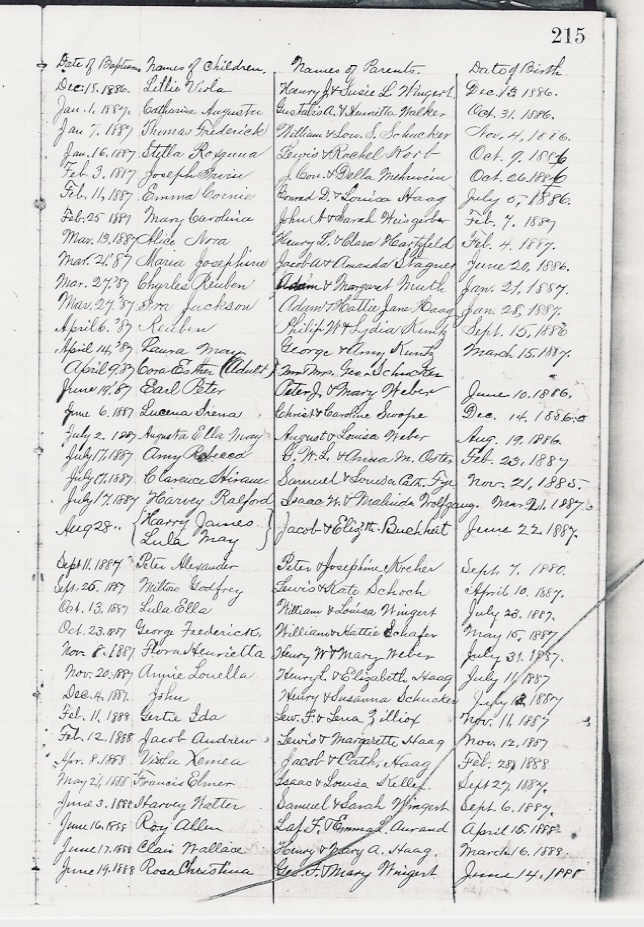 215
Date of Baptism Names of Children. Names of Parents. Date of Birth
Dec. 15. 1886. Lillie Viola Henry J. & Susie L. Wingert Dec. 13. 1886.
Jan. 1. 1887. Catharine Augusta Gustavis A. & Henrietta Walker Oct. 31. 1886.
Jan 7. 1887 Thomas Frederick William & Lou. S. Schucker Nov. 4, 1886.
Jan. 16. 1887 Stella Rosanna Lewis & Rachel Korb Oct. 9. 1886
Feb. 3. 1887 Joseph J. Con. & Della Oct. 26 1886
Feb. 11, 1887 Emma Conrad D. & Louisa Haag July 5, 1886.
Feb. 25 1887 Mary Caroline John A & Sarah Weisgerber Feb. 7. 1887
Mar. 13. 1887 Alice Nora Henry L. & Clara Hartzfeld Feb. 4. 1887.
Mar. 21. '87 Maria Josephine Jacob A & Amanda Stagner June 20, 1886.
Mar. 27. '87 Charles Reuben Adam & Margaret Muth Jan. 21. 1887.
Mar. 27. '87 Ira Jackson Adam & Hattie Jane Haag Jan. 28, 1887.
April 6. '87 Reuben Philip W & Lydia Kuntz Sept. 15, 1886
April 14, '87 Laura May George & Amy Kuntz March 15, 1887.
April 9. 87 Cora Esther (Adult) Mr & Mrs. Geo. Schucker
June 19. '87 Earl Peter Peter J. & Mary Weber June 10. 1886.
June 6. 1887 Lucena Irena Christ & Caroline Swope Dec. 14. 1886
July 2. 1887 Augusta Ella May August & Louisa Weber Aug. 19. 1886.
July 17, 1887 Amy Rebecca G. W. L. & Anna M. Oster Feb. 23, 1887
July 17, 1887 Clarence Hiram Samuel & Louisa Cath. Fye Nov. 21, 1885.
July 17, 1887 Harvey Ralford Isaac N. & Malinda Wolfgang. Mar. 21. 1887.
Aug 28 " {Harry James. Lula May} Jacob & Elizth. Buchheit June 22, 1887.
Sept 11. 1887 Peter Alexander Peter & Josephine Kocher Sept. 7. 1880.
Sept. 25, 1887 Milton Godfrey Lewis & Kate Schoch April 10. 1887.
Oct. 13. 1887 Lula Ella William & Louisa Wingert July 23. 1887.
Oct. 23. 1887 George Frederick William & Hattie Schafer May 15, 1887
Nov. 8. 1887 Flora Henrietta Henry W & Mary Weber July 31. 1887.
Nov. 20. 1887 Annie Louella Henry L. & Elizabeth Haag July 11, 1887
Dec. 4. 1887. John Henry & Susanna Schucker July 1887
Feb. 11, 1888 Gertie Ida Lew. F. & Lena Zilliox Nov. 11. 1887
Feb. 12. 1888 Jacob Andrew Lewis & Margarett Haag Nov. 12, 1887
Apr. 8. 1888 Viola Xemea Jacob & Cath. Haag Feb. 28, 1888
May 24, 1888 Francis Elmer Isaac & Louisa Kelly Sept 27, 1887.
June 3. 1888 Harvey Samuel & Sarah Wingert Sept. 6. 1887.
June 16. 1888 Roy Allen Laf. F. & Emma L. Aurand April 15 1888
June 17. 1888 Clair Wallace Henry & Mary A. Haag. March 16. 1888.
June 19. 1888 Rosa Christina Geo. F. & Mary Wingert June 14. 1888